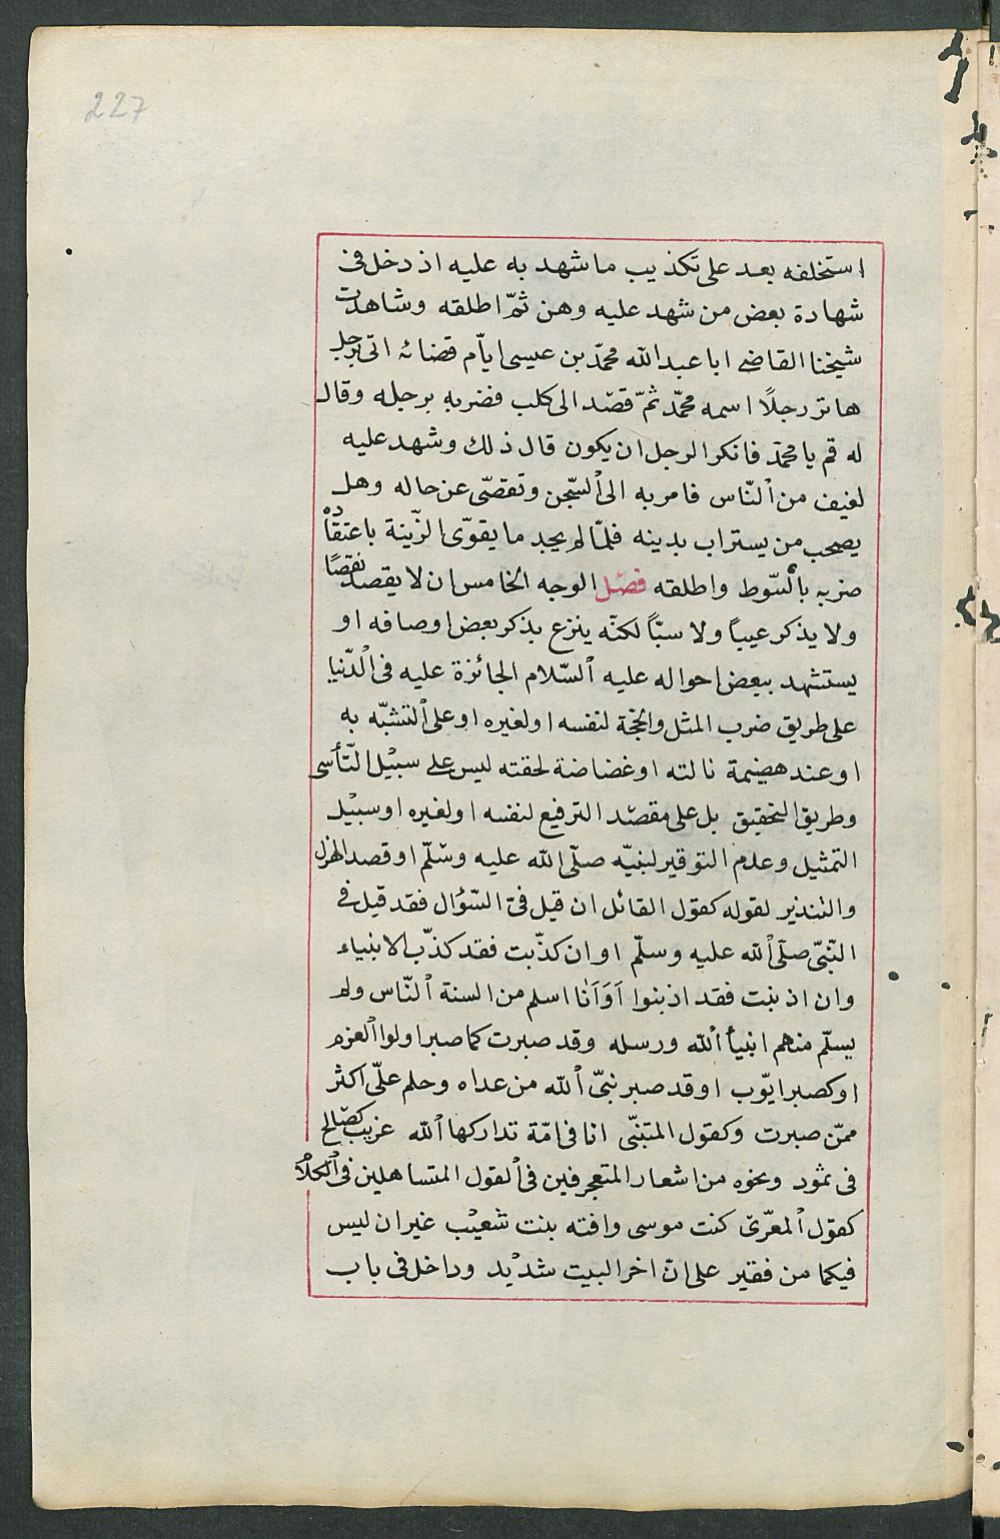 227
استخلفه بعد على تكذيب ما شهد به عليه اذ دخل فى
شهادة بعض من شهد عليه وهن ثمّ اطلقه وشاهدت
شيخنا القاضى ابا عبد الله محمّد بن عيسى ايّام قضائه اتى برجل
هاتر رجلًا اسمه محمّد ثمّ قصد الى كلب فضربه برجله وقال
له قم يا محمّد فانكر الرجل ان يكون قال ذلك وشهد عليه
لفيف من النّاس فامر به الى السّجن وتقصّى عن حاله وهل
يصحب من يستراب بدينه فلمّا لم يجد ما يقوّى الرّيبة باعتقاده
ضربه بالسّوط واطلقه فصل الوجه الخامس ان لا يقصد نقصًا
ولا يذكر عيبًا ولا سبّا لكنّه ينزع بذكر بعض اوصافه او
يستشهد ببعض احواله عليه السّلام الجائزة عليه فى الدّنيا
على طريق ضرب المثل والحجّة لنفسه او لغيره او على التشبّه به
او عند هضيمة نالته او غضاضة لحقته ليس على سبيل التّأسى
وطريق التحقيق بل على مقصد الترفيع لنفسه او لغيره او سبيل
التمثيل وعدم التوقير لنبيّه صلّى الله عليه وسّلّم او قصد الهزل
والتنذير لقوله كقول القائل ان قيل فىّ السّؤال فقد قيل فى
النّبىّ صلّى الله عليه وسلّم او ان كذّبت فقد كذّب الانبياء
وان اذنبت فقد اذنبوا اَوَاَنا اسلم من السنة النّاس ولم
يسلّم منهم انبيأ الله ورسله وقد صبرت كما صبر اولوا العزم
او كصبر ايّوب او قد صبر نبىّ الله من عداه وحلم علّى اكثر
ممّن صبرت وكقول المتنبّى انا فى امّة تداركها الله غريب كصالح
فى ثمود ونحوه من اشعار المتعجرفين فى القول المتساهلين فى الكلام
كقول المعرّى كنت موسى وافته بنت شعيب غير ان ليس
فيكما من فقير على انّ اخر البيت شديد وداخل فى باب